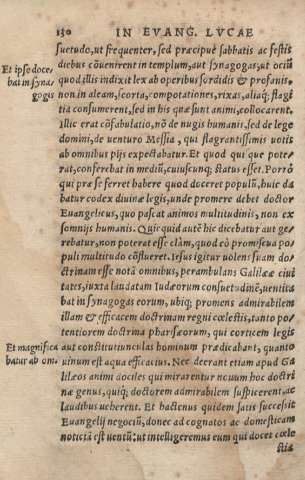 130 IN EVANG. LVCAE
suetudo, ut frequenter, sed præcipuè sabbatis ac festis
diebus cōuenirent in templum, aut synagogas, ut ociū
Et ipse doce⸗
quod illis indixit lex ab operibus sordidis & profanis,
bat in syna⸗
non in aleam, scorta, compotationes, rixas, aliaq́; flagi
gogis
tia consumerent, sed in his quæ sunt animi, collocarent.
Illic erat cōfabulatio, nō de nugis humanis, sed de lege
domini, de uenturo Messia, qui flagrantissimis uotis
ab omnibus pijs expectabatur. Et quod qui que pote⸗
rat, conferebat in mediū, cuiuscunq; status esset. Porrò
qui præ se ferret habere quod doceret populū, huic da
batur codex diuinæ legis, unde promere debet doctor
Euangelicus, quo pascat animos multitudinis, non ex
somnijs humanis. Quicquid autē hic dicebatur aut ge⸗
rebatur, non poterat esse clàm, quod eò promiscua po
puli multitudo cōflueret. Iesus igitur uolens suam do
ctrinam esse notā omnibus, perambulans Galilææ ciui
tates, iuxta laudatam Iudæorum consuetudinē, uenita⸗
bat in synagogas eorum, ubiq; promens admirabilem
illam & efficacem doctrinam regni cœlestis, tanto po⸗
tentiorem doctrina pharisæorum, qui corticem legis
Et magnifica
aut constitutiunculas hominum prædicabant, quanto
batur ab om.
uinum est aqua efficacius. Nec deerant etiam apud Ga
lilæos animi dociles qui mirarentur nouum hoc doctri
næ genus, quiq; doctorem admirabilem suspicerent, ac
laudibus ueherent. Et hactenus quidem satis successit
Euangelij negociū, donec ad cognatos ac domesticam
noticiā est uentū: ut intelligeremus eum qui docet cœle
stia